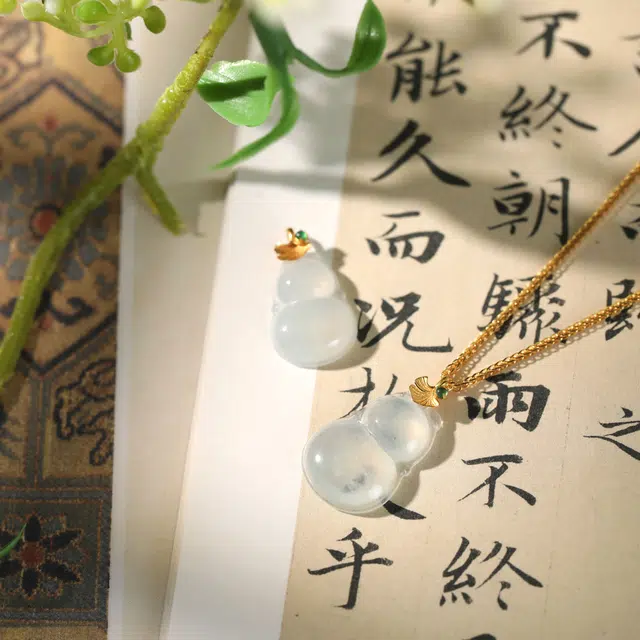 之
不終朝驟雨不終
能久而況乎